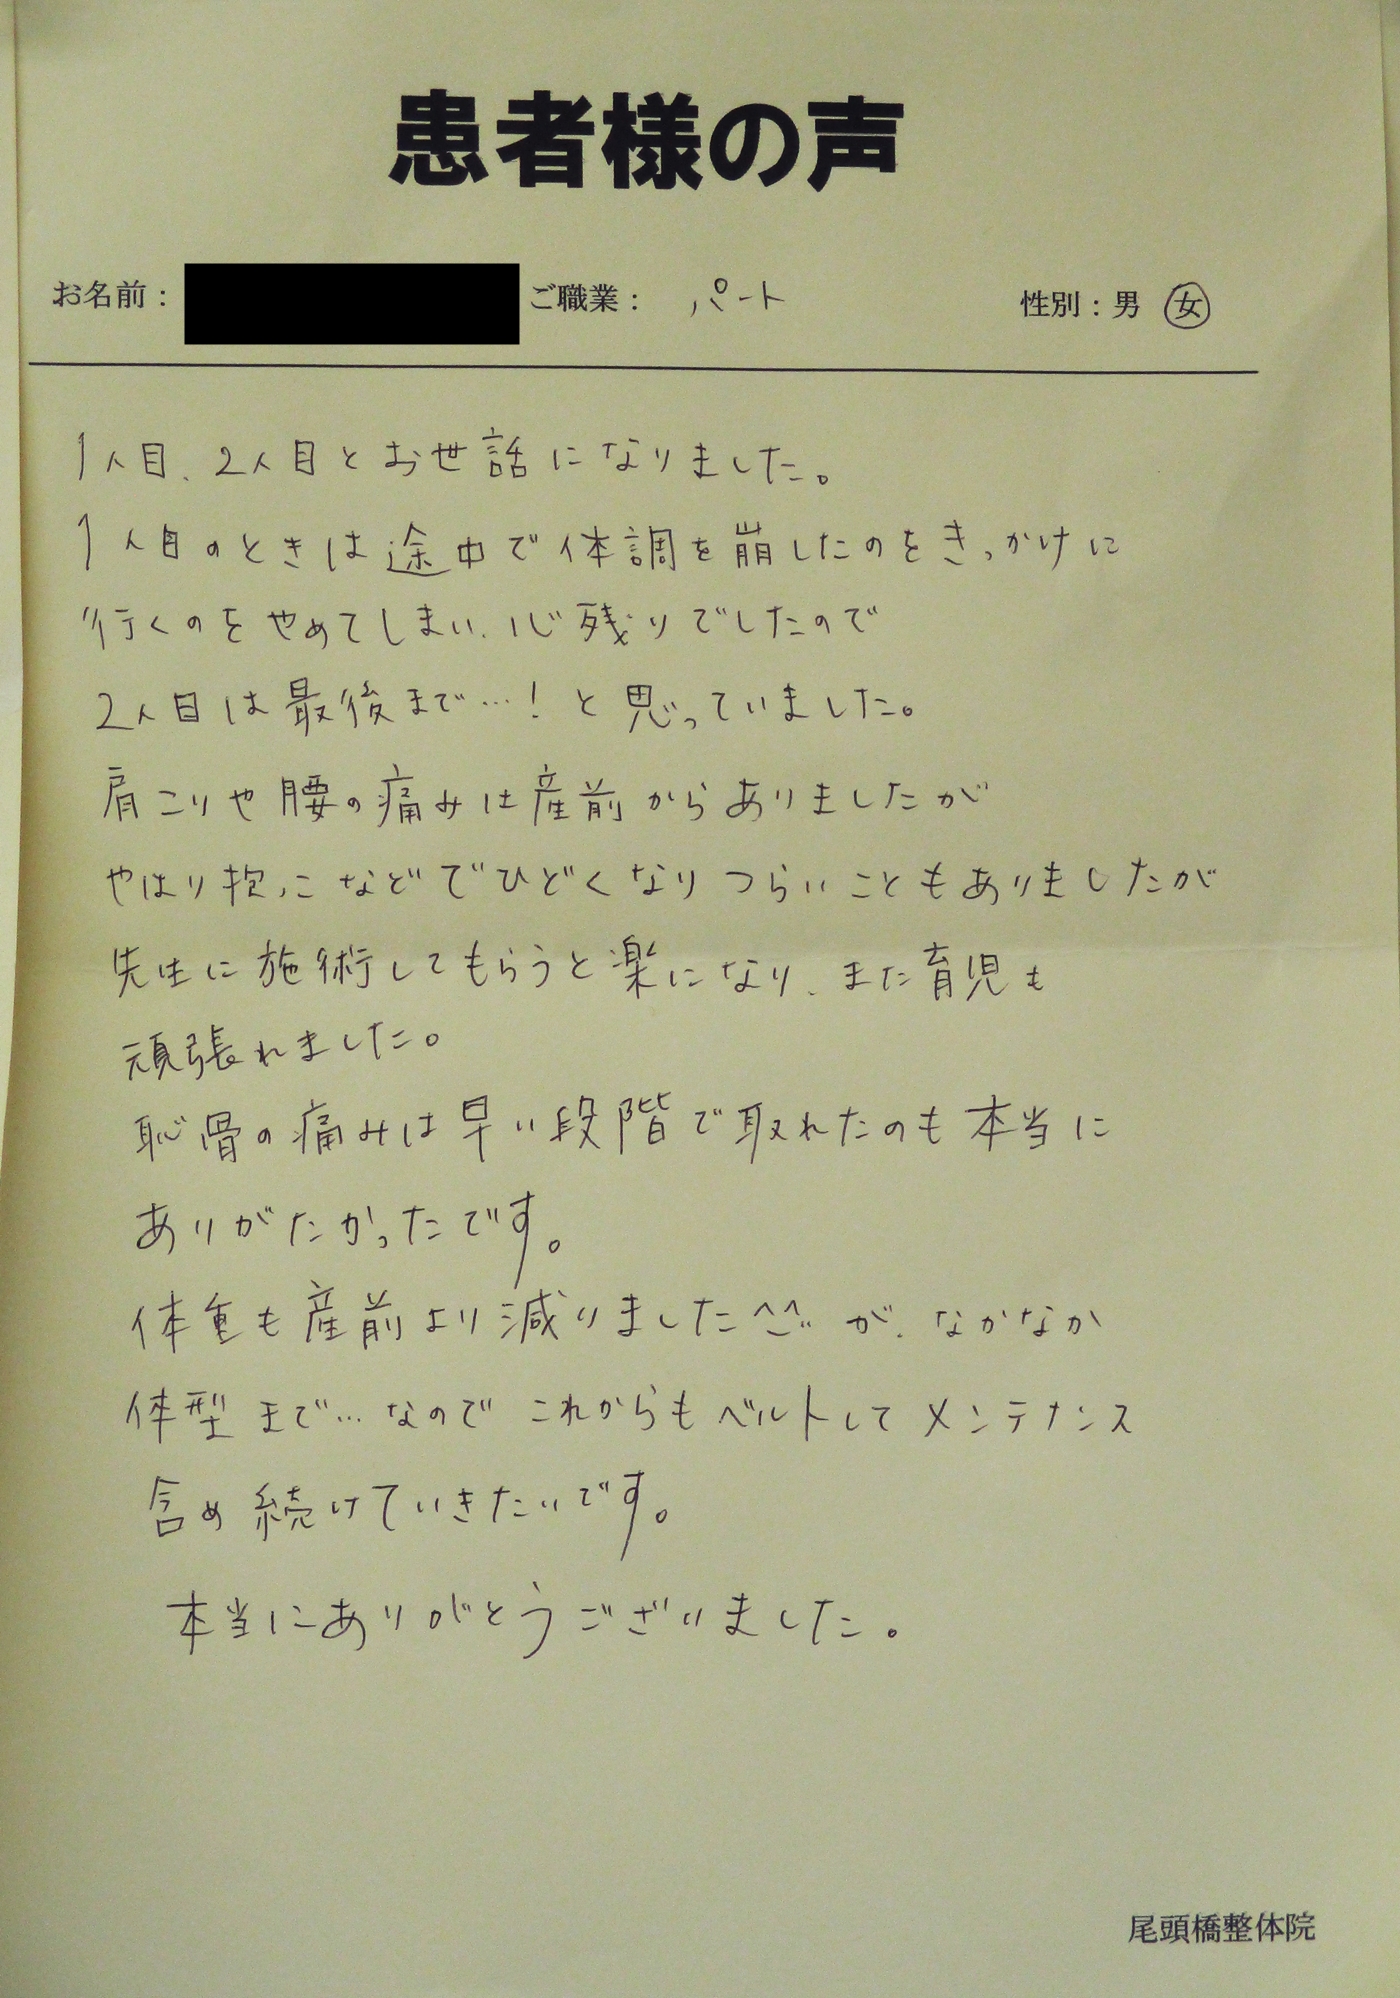 患者様の声
お名前： ご職業： パート 性別：男 女
1人目、2人目とお世話になりました。
1人目のときは途中で体調を崩したのをきっかけに
行くのをやめてしまい、心残りでしたので
2人目は最後まで…！と思っていました。
肩こりや腰の痛みは産前からありましたが
やはり抱っこなどでひどくなりつらいこともありましたが
先生に施術してもらうと楽になり、また育児も
頑張れました。
恥骨の痛みは早い段階で取れたのも本当に
ありがたかったです。
体重も産前より減りました^^が、なかなか
体型まで…なので これからもベルトしてメンテナンス
含め続けていきたいです。
本当にありがとうございました。
尾頭橋整体院